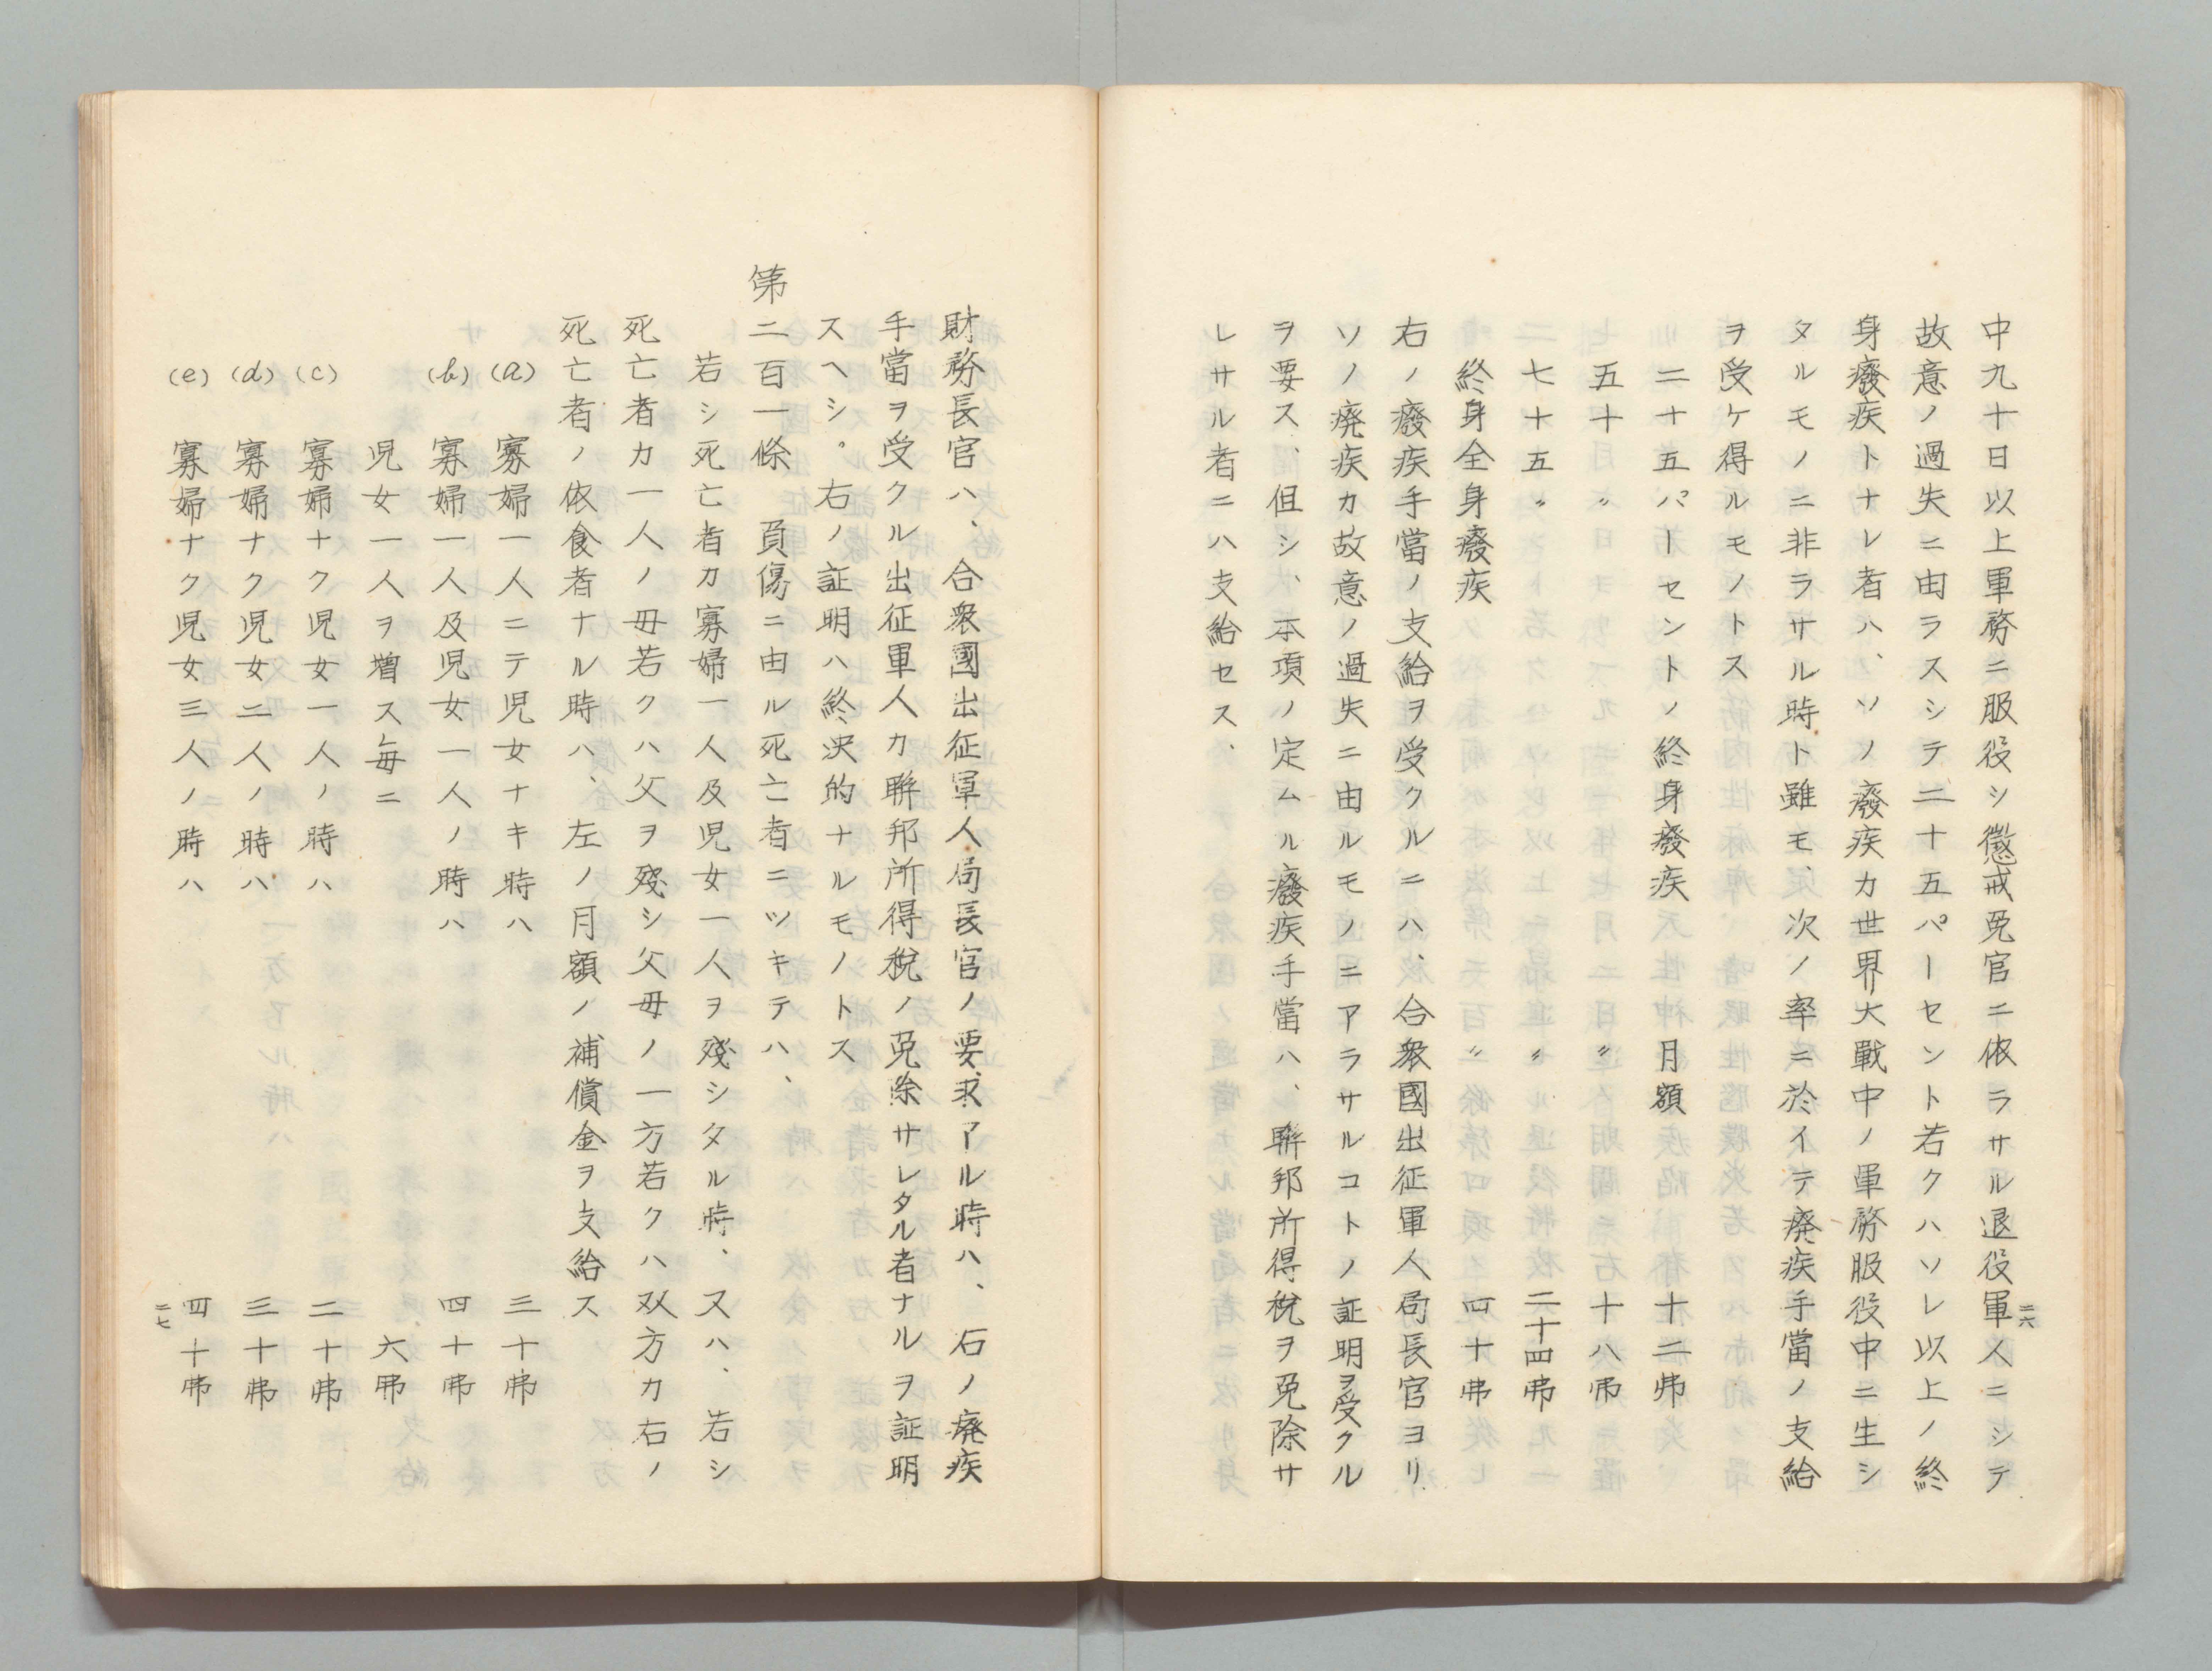 二六
中九十日以上軍務ニ服役シ懲戒免官ニ依ラサル退役軍人ニシテ
故意ノ過失ニ由ラスシテ二十五パーセント若クハソレ以上ノ終
身廢疾トナレ者ハ、ソノ廢疾カ世界大戰中ノ軍務服役中ニ生シ
タルモノニ非ラサル時ト雖モ、次ノ率ニ於イテ廃疾手當ノ支給
ヲ受ケ得ルモノトス
二十五パーセントノ終身廢疾 月額 十二弗
五十 〃 〃 十八弗
七十五 〃 〃 二十四弗
終身全身廢疾 〃 四十弗
右ノ廢疾手當ノ支給ヲ受クルニハ、合衆國出征軍人局長官ヨリ
ソノ廃疾カ故意ノ過失ニ由ルモノニアラサルコトノ証明ヲ受クル
ヲ要ス、但シ、本項ノ定ムル廢疾手當ハ、聯邦所得税ヲ免除サ
レサル者ニハ支給セス、
財務長官ハ、合衆國出征軍人局長官ノ要求アル時ハ、石ノ廃疾
手當ヲ受クル出征軍人カ聯邦所得税ノ免除サレタル者ナルヲ証明
スヘシ。右ノ証明ハ終決的ナルモノトス
第二百一條 負傷ニ由ル死亡者ニツキテハ、
若シ死亡者カ寡婦一人及児女一人ヲ殘シタル時、又ハ、若シ
死亡者カ一人ノ母若クハ父ヲ殘シ父母ノ一方若クハ双方カ右ノ
死亡者ノ依食者ナル時ハ、左ノ月額ノ補償金ヲ支給ス
(a) 寡婦一人ニテ児女ナキ時ハ 三十弗
(b) 寡婦一人及児女一人ノ時ハ 四十弗
児女一人ヲ増ス毎ニ 六弗
(c) 寡婦ナク児女一人ノ時ハ 二十弗
(d) 寡婦ナク児女二人ノ時ハ 三十弗
(e) 寡婦ナク児女三人ノ時ハ 四十弗
二七